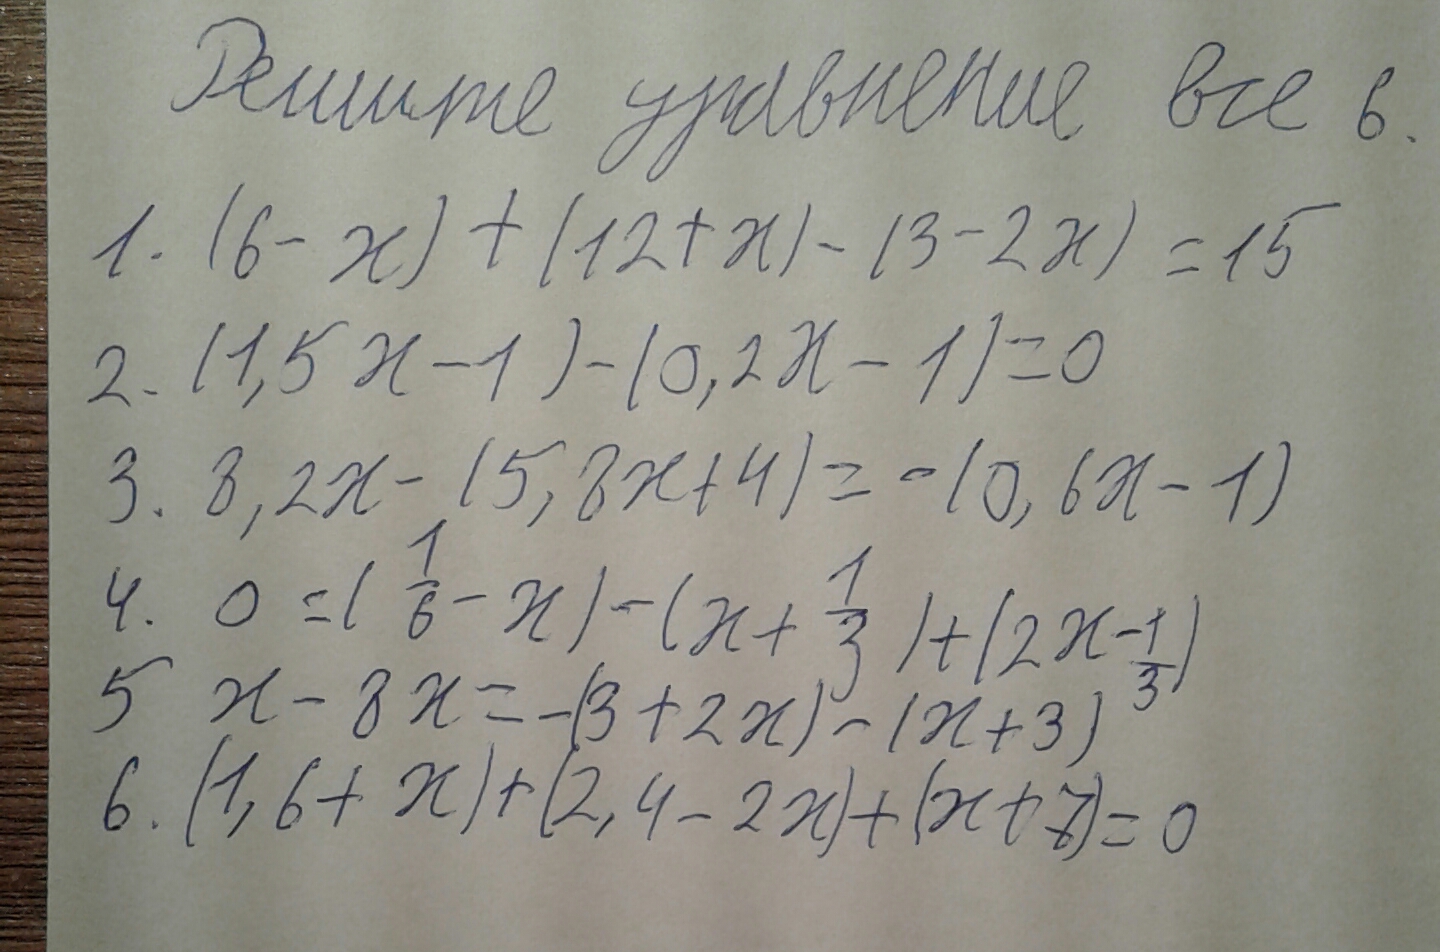 Решите уравнение все 6.
1. (6 - x) + (12 + x) - (3 - 2x) = 15
2. (1,5x - 1) - (0,2x - 1) = 0
3. 8,2x - (5,8x + 4) = - (0,6x - 1)
4. 0 = (1/6 - x) - (x + 1/3) + (2x - 1/3)
5 x - 8x = - (3 + 2x) - (x + 3)
6. (1,6 + x) + (2,4 - 2x) + (x + 7) = 0